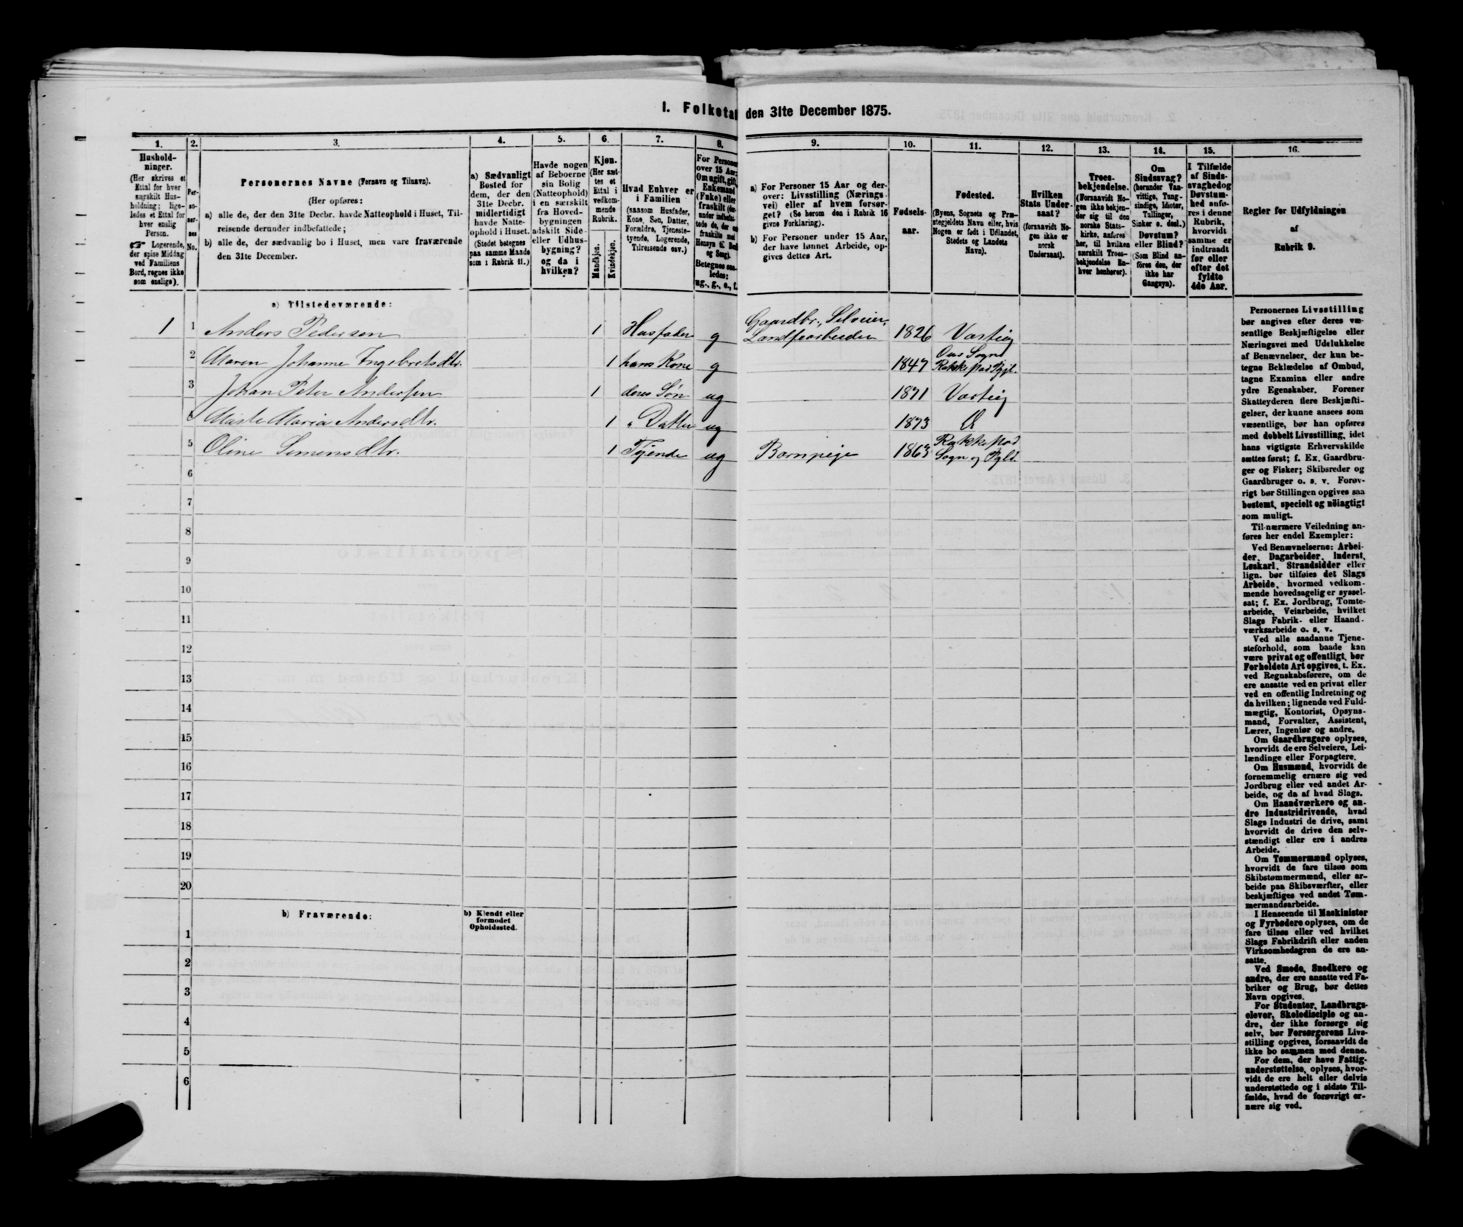 I. Folketal den 31te December 1875.
1. 2. 3. 4. 5. 6. 7. 8. 9. 10. 11. 12. 13. 14. 15. 16.
Hushold-
ninger.
(Her skrives et
Ettal for hver
særskilt Hus-
holdning; lige-
ledes et Ettal for
hver enslig
Person.
☞ Logerende,
der spise Middag
ved Familiens
Bord, regnes ikke
som enslige).
Per-
so-
ner-
nes
No.
Personernes Navne (Fornavn og Tilnavn).
(Her opføres:
a) alle de, der den 31te Decbr. havde Natteophold i Huset, Til-
reisende derunder indbefattede;
b) alle de, der sædvanlig bo i Huset, men vare fraværende
den 31te December.
a) Sædvanligt
Bosted for
dem, der den
31te Decbr.
midlertidigt
havde Natte-
ophold i Huset.
(Stedet betegnes
paa samme Maade
som i Rubrik 11.)
Havde nogen
af Beboerne
sin Bolig
(Natteophold)
i en særskilt
fra Hoved-
bygningen
adskilt Side-
eller Udhus-
bygning?
og da i
hvilken?
Kjøn.
(Her sæt-
tes et
Ettal i
vedkom-
mende
Rubrik.
Mandkjøn.
Kvindekjøn.
Hvad Enhver er
i Familien
(saasom Husfader,
Kone, Søn, Datter,
Forældre, Tjeneste-
tyende, Logerende,
Tilreisende osv.)
For Personer
over 15 Aar:
Om ugift, gift,
Enkemand
(Enke) eller
fraskilt
Betegnes saa-
ledes:
ug., g., e., f.
a) For Personer 15 Aar og der-
over: Livsstilling (Nærings-
vei) eller af hvem forsør-
get? (Se herom den i Rubrik 16
givne Forklaring).
b) For Personer under 15 Aar,
der have lønnet Arbeide, op-
gives dettes Art.
Fødsels-
aar.
Fødested.
(Byens, Sognets og Præ-
stegjeldets Navn eller, hvis
Nogen er født i Udlandet,
Stedets og Landets
Navn).
Hvilken
Stats Under-
saat?
(forsaavidt No-
gen ikke er
norsk
Undersaat).
Troes-
bekjendelse.
(Forsaavidt No-
gen ikke bekjen-
der sig til den
norske Stats-
kirke, anføres
her, til hvilken
særskilt Troes-
bekjendelse En-
hver henhører).
Om
Sindssvag?
(herunder Van-
vittige, Tung-
sindige, Idioter,
Tullinger,
Sinker o. desl.)
Døvstum?
eller Blind?
(Som Blind an-
føres den, der
ikke har
Gangsyn).
I Tilfælde
af Sinds-
svaghed og
Døvstum-
hed anfø-
res i denne
Rubrik,
hvorvidt
samme er
indtraadt
før eller
efter det
fyldte
4de Aar.
Regler for Udfyldningen
af
Rubrik 9.
a) Tilstedeværende:
1 1 Anders Pedersen 1 Husfader g Gaardbr., Selveier, Landhandler 1826
2 Maren Johanne Ingebretsdtr. 1 hans Kone g 1847 Ous Sogn Rakkestad Pgl.
3 Johan Peter Andersen 1 deres Søn ug 1871
Maria Andersdtr. 1 " Datter ug 1873
5 Oline Simensdtr. 1 Tjende ug Barnpige 1863 Rakkestad Sogn og Pgld.
6
7
8
9
10
11
12
13
14
15
16
17
18
19
20
b) Fraværende:
b) Kjendt eller
formodet
Opholdssted.
1
2
3
4
5
6
Personernes Livsstilling
bør angives efter deres væ-
sentlige Beskjæftigelse eller
Næringsvei med Udelukkelse
af Benævnelser, der kun be-
tegne Beklædelse af Ombud,
tagne Examina eller andre
ydre Egenskaber. Forener
Skatteyderen flere Beskjæfti-
gelser, der kunne ansees som
væsentlige, bør han opføres
med dobbelt Livsstilling, idet
hans vigtigste Erhvervskilde
sættes først; f. Ex. Gaardbru-
ger og Fisker; Skibsreder og
Gaardbruger o. s. v. Forøv-
rigt bør Stillingen opgives saa
bestemt, specielt og nøiagtigt
som muligt.
Til nærmere Veiledning an-
føres her endel Exempler:
Ved Benævnelserne: Arbei-
der, Dagarbeider, Inderst,
Løskarl, Strandsidder eller
lign. bør tilføies det Slags
Arbeide, hvormed vedkom-
mende hovedsagelig er syssel-
sat; f. Ex. Jordbrug, Tomte-
arbeide, Veiarbeide, hvilket
Slags Fabrik- eller Haand-
værksarbeide o. s. v.
Ved alle saadanne Tjene-
steforhold, som baade kan
være privat og offentligt, bør
Forholdets Art opgives, t. Ex.
ved Regnskabsførere, om de
ere ansatte ved en privat eller
ved en offentlig Indretning og
da hvilken; lignende ved Fuld-
mægtig, Kontorist, Opsyns-
mand, Forvalter, Assistent,
Lærer, Ingeniør og andre.
Om Gaardbrugere oplyses,
hvorvidt de ere Selveiere, Lei-
lændinge eller Forpagtere.
Om Husmænd, hvorvidt de
fornemmelig ernære sig ved
Jordbrug eller ved andet Ar-
beide, og da af hvad Slags.
Om Haandværkere og an-
dre Industridrivende, hvad
Slags Industri de drive, samt
hvorvidt de drive den selv-
stændigt eller ere i andres
Arbeide.
Om Tømmermænd oplyses,
hvorvidt de fare tilsøs som
Skibstømmermænd, eller ar-
beide paa Skibsværfter, eller
beskjæftiges ved andet Tøm-
mermandsarbeide.
I Henseende til Maskinister
og Fyrbødere oplyses, om de
fare tilsøs eller ved hvilket
Slags Fabrikdrift eller anden
Virksomhedsgren de ere an-
satte.
Ved Smede, Snedkere og
andre, der ere ansatte ved Fa-
briker og Brug, bør dettes
Navn opgives.
For Studenter, Landbrugs-
elever, Skoledisciple og an-
dre, der ikke forsørge sig
selv, bør Forsørgerens Livs-
stilling opgives, forsaavidt de
ikke bo sammen med denne.
For dem, der have Fattig-
understøttelse, oplyses, hvor-
vidt de ere helt eller delvis
understøttede og i sidste Til-
fælde, hvad de forøvrigt er-
nære sig ved.